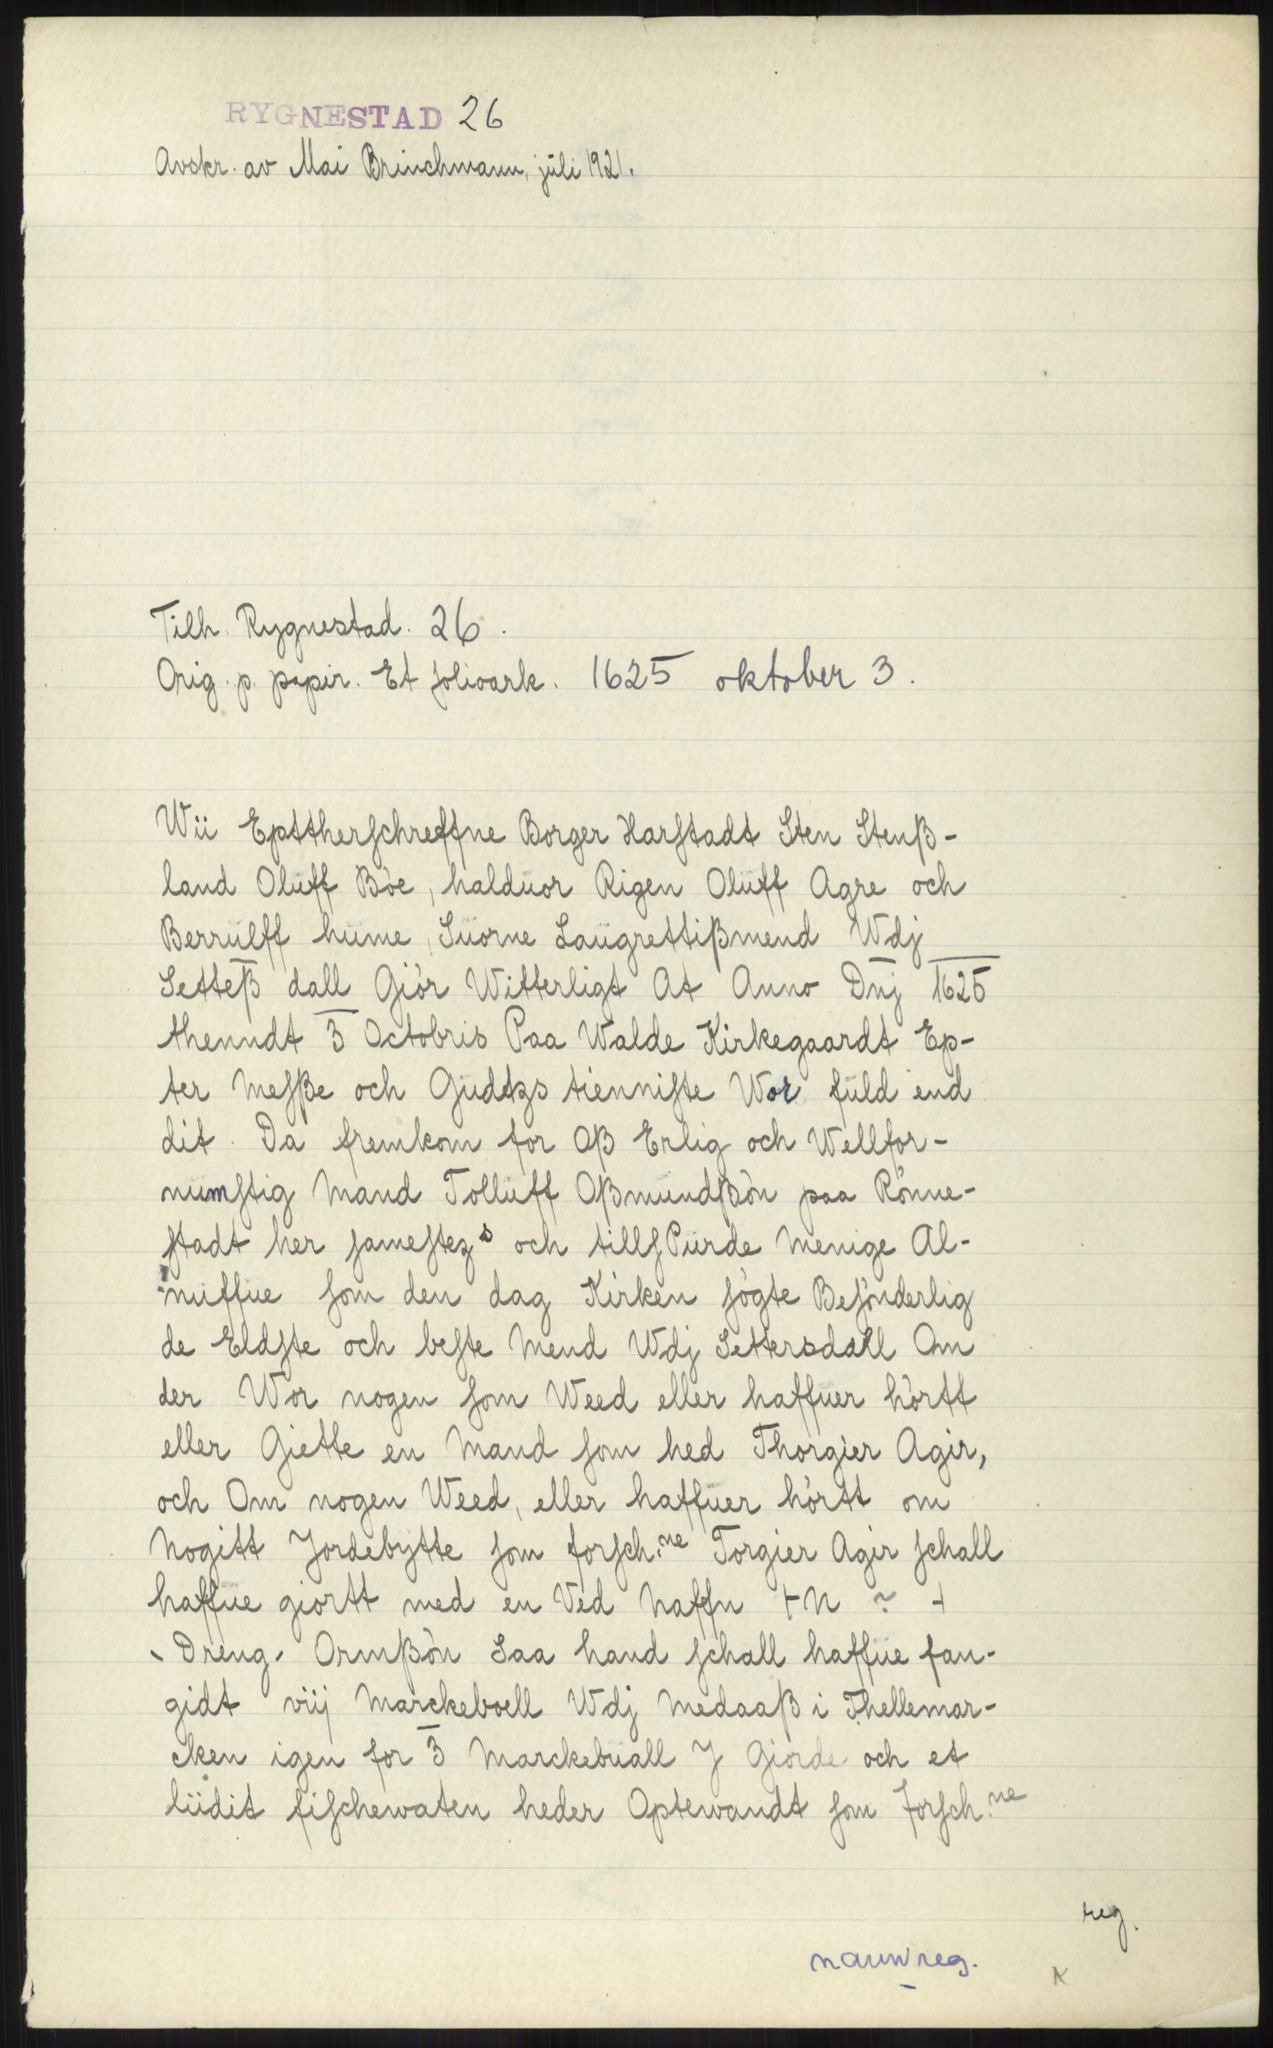 RYGNESTAD 26
Avskr. av Mai Brinchmann, juli 1921.
Tilh. Rygnestad. 26.
Orig. p. papir. Et folioark. 1625 oktober 3.
Wii Epttherschreffne Borger Harstadt Sten Stenß-
land Oluff Bòe, halduor Rigen Oluff Agre och
Berrulff hume, Suorne Laugrettißmend Wdj
Setteß dall Giòr Witterligt At Anno Dnj 1625
thenndt 3 Octobris Paa Walde Kirkegaardt Ep-
ter Meßße och Gudtzs tienniste Wor fuld end
dit. Da fremkom for Oß Erlig och Wellfor-
numstig Mand Tolluff Oßmundßòn paa Rònne-
stadt her samestezs och tillsPurde Menige Al-
muffue som den dag Kirken sògte Besònderlig
de Eldste och beste Mend Wdj Settersdall Om
der Wor nogen som Weed eller haffuer hòrtt
eller Giette en Mand som hed Thorgier Agir,
och Om nogen Weed, eller haffuer hòrtt om
Nogitt Jordebytte som forsch:ne Torgier Agir schall
haffue giortt med en Ved Naffn + N ~ +
Dreng. Ormßòn Saa hand schall haffue fan-
gidt viij Marckeboell Wdj Medaaß i Thellemar-
cken igen for 3 Marckebuall J Giorde och et
lüdit fischewaten heder Optewandt som forsch:ne
reg.
navnreg.